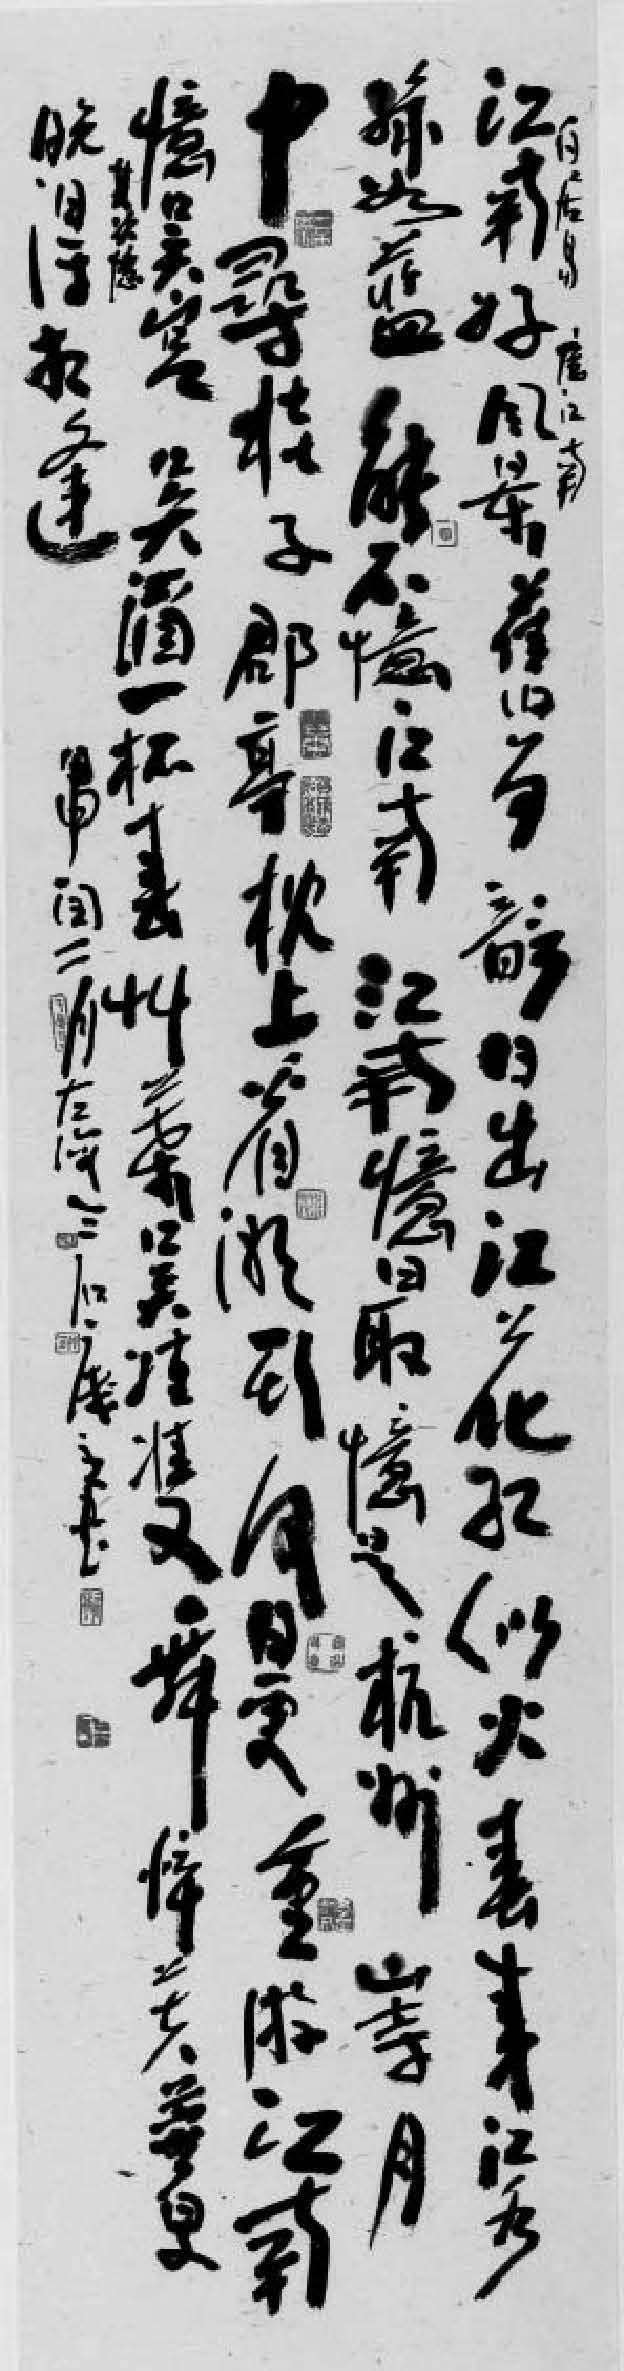 白居易 憶江南
江南好風景舊曾諳日出江花紅似火春來江水
綠如藍能不憶江南江南憶最憶是杭州山寺月
中尋桂子郡亭枕上看潮頭何日更重游江南
憶吳宮吳酒一杯春竹葉吳娃雙又舞醉芙蓉早
其次憶
晚得相逢
閏二月